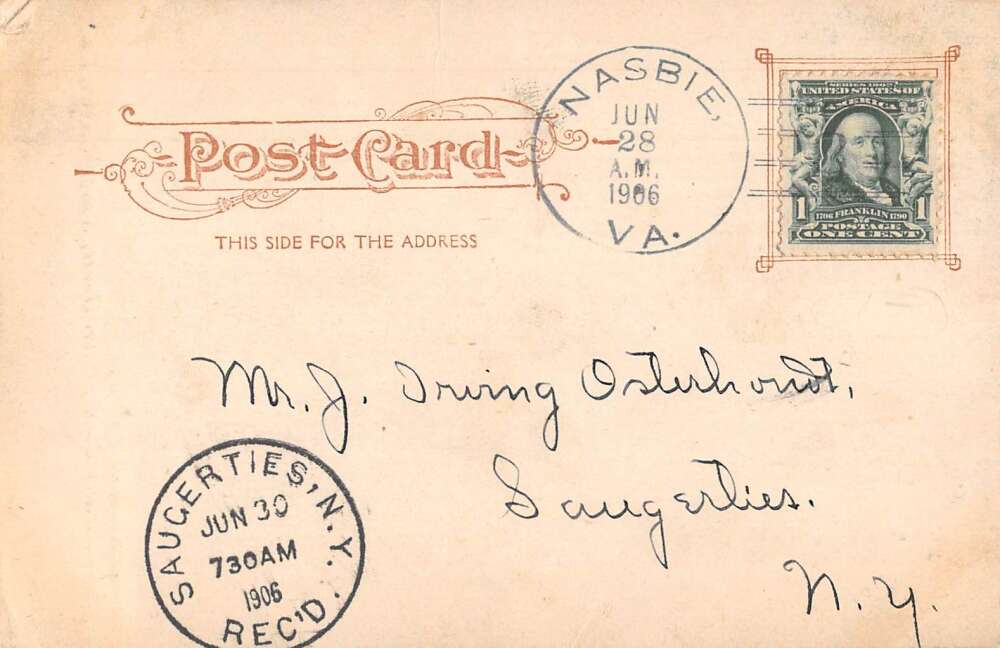 NASBIE,
JUN
28
A.M.
1906
VA.
SERIES 1902
UNITED STATES OF
AMERICA
1 1
1706 FRANKLIN 1790
POSTAGE
ONE CENT
Post Card
THIS SIDE FOR THE ADDRESS
Mr. J. Irving Osterhoudt,
Saugerties.
N. Y.
SAUGERTIES, N.Y.
JUN 30
730AM
1906
REC'D.